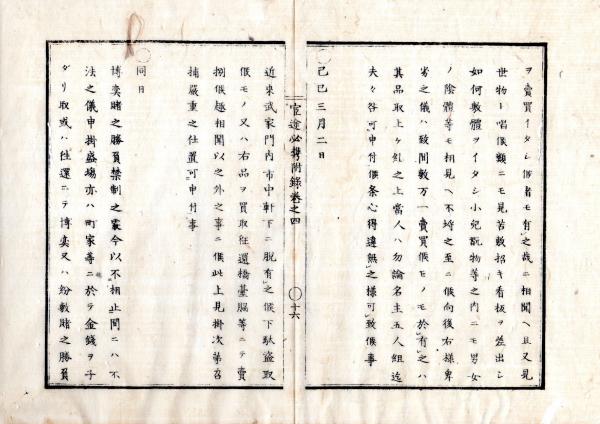 ヲ賣買イタシ候者モ有之哉ニ相聞ヘ且又見
世物ト唱候類ニモ見苦敷招キ看板ヲ差出シ
如何敷體ヲイタシ小兒翫物等之内ニモ男女
ノ陰體等モ相見ヘ不埒之至ニ候向後右樣卑
劣之儀ハ致間敷万一賣買候モノモ於有之ハ
其品取上ケ糺之上當人ハ勿論名主五人組迄
夫々咎可申付候条心得違無之樣可致候事
己巳三月二日
官途必携附錄卷之四
十六
近来武家門内市中軒下ニ脱有之候下駄盜取
候モノ又ハ右品ヲ買取往還橋臺脇等ニテ賣
捌候趣相聞以之外之事ニ候此上見掛次第召
捕嚴重之仕置可申付事
同日
博奕賭之勝負禁制之處今以不相止間ニハ不
法之儀申掛盛塲亦ハ町家等ニ於テ金錢ヲ子
ダリ取或ハ往還ニテ博奕又ハ紛敷賭之勝負